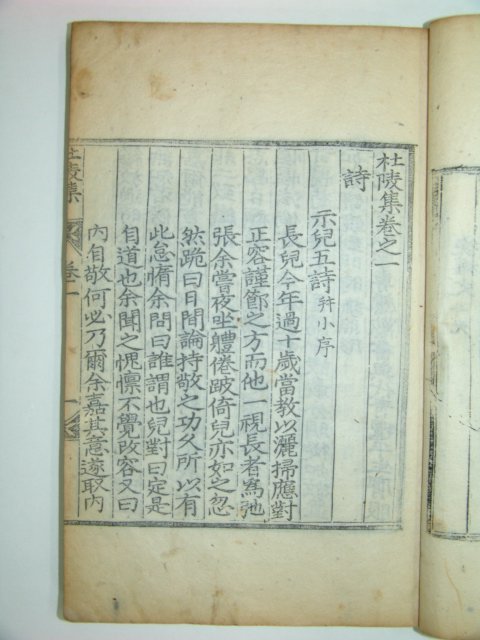 杜陵集卷之一
詩
示兒五詩 幷小序
長兒今年過十歲當教以灑掃應對
正容謹節之方而他一視長者爲弛
張余嘗夜坐軆倦跛倚兒亦如之忽
然跪曰日間論持敬之功久所以有
此怠惰余問曰誰謂也兒對曰定是
自道也余聞之愧懍不覺改容又曰
內自敬何必乃爾余嘉其意遂取內
杜陵集
卷一
一